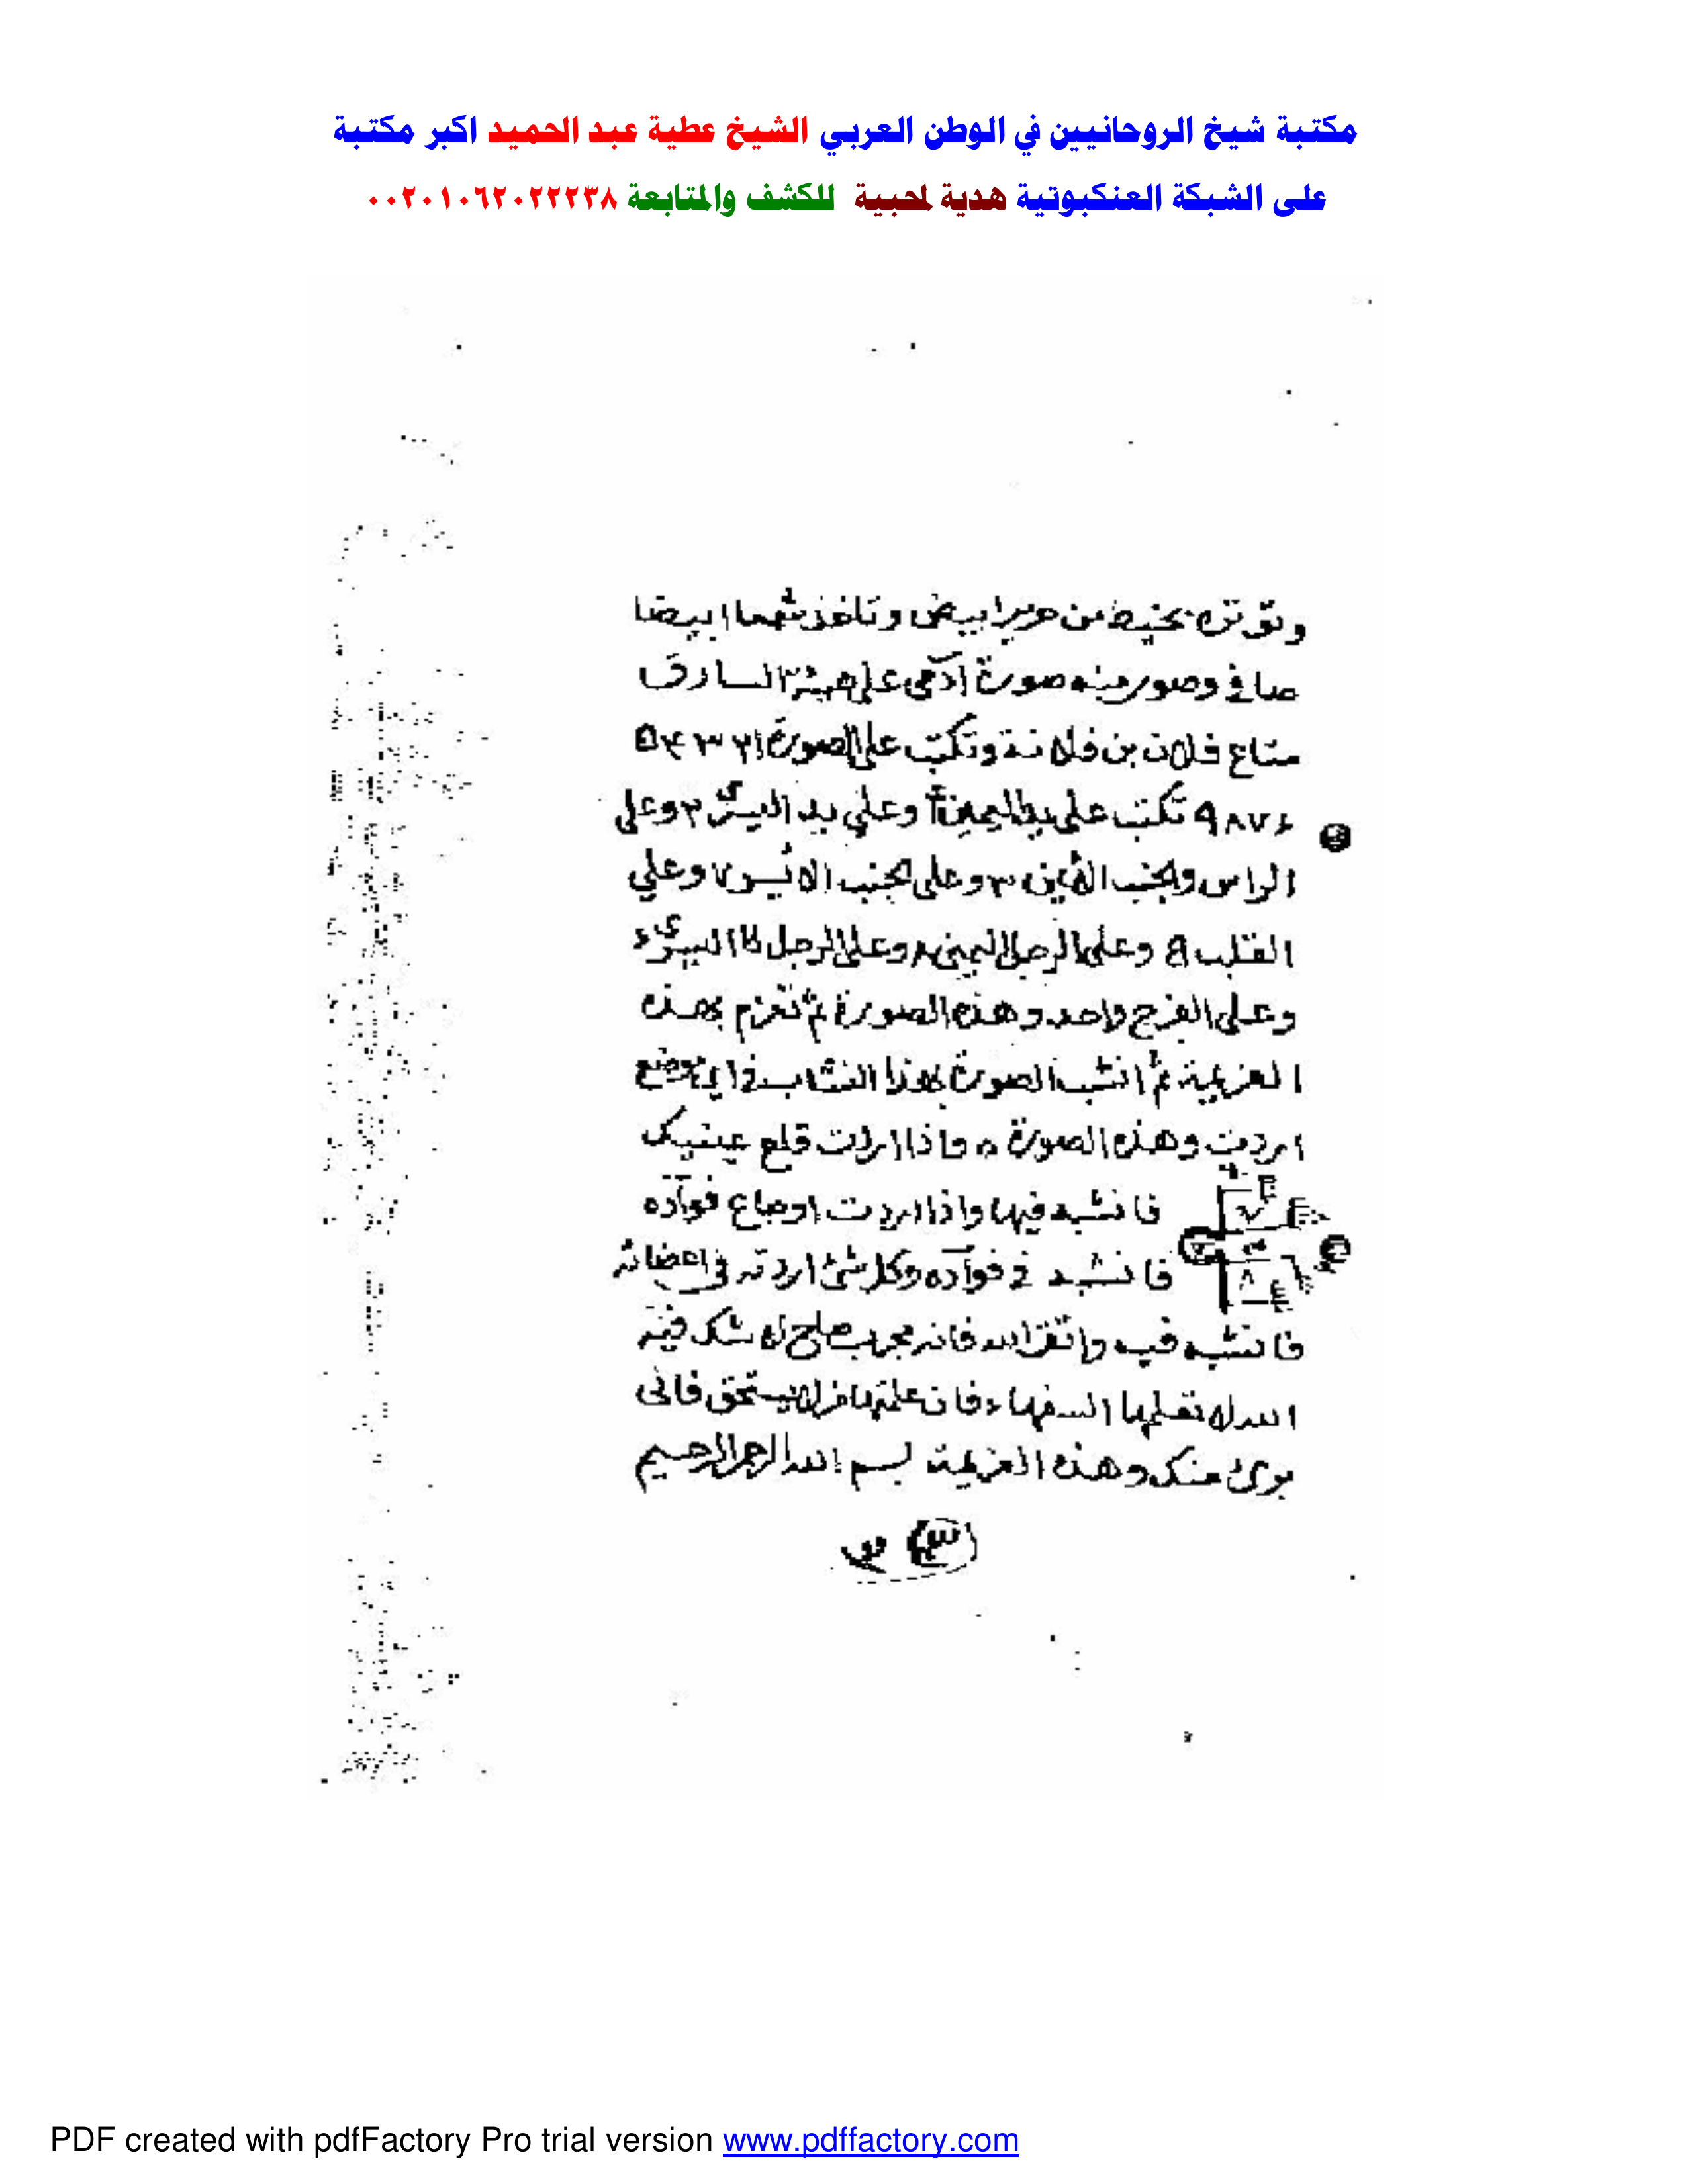 مكتبة شيخ الروحانيين في الوطن العربي الشيخ عطية عبد الحميد اكبر مكتبة
على الشبكة العنكبوتية هدية لمحبية للكشف والمتابعة ٠٠٢٠١٠٦٢٠٢٢٢٣٨
بخيط من حرير ابيض وتاخذ شمعا ابيضا
صافي وصور منه صورة آدمي على هيئة السارق
متاع فلان بن فلانة وتكتب على الصورة ١ ٢ ٣ ٤ ٥
٦ ٧ ٨ ٩ تكتب على يد اليمين وعلي يد اليسرى ٢ وعلى
الراس والجنب ٣ وعلى الجنب الايسر ٧ وعلي
القلب ٥ وعلى الرجل اليمنى ٨ وعلى الرجل اليسرى
وعلى الفرج واحد وهذه الصورة ثم تعزم بهذه
العزيمة ثم انشب الصورة بهذا النشاب في اي موضع
اردت وهذه الصورة ه واذا اردت قلع عينيك
فانشبه فيها واذا اردت اوجاع فوآده
فانشبه في فوآده وكل شئ اردته في اعضائه
فانشبه فيه واتق الله فانه مجرب صلح لا شك فيه
الله لا تعلمها السفهاء فان علمتها لمن لا يستحق فاني
برئ منك وهذه العزيمة بسم الله الرحمن الرحيم
٣
PDF created with pdfFactory Pro trial version www.pdffactory.com